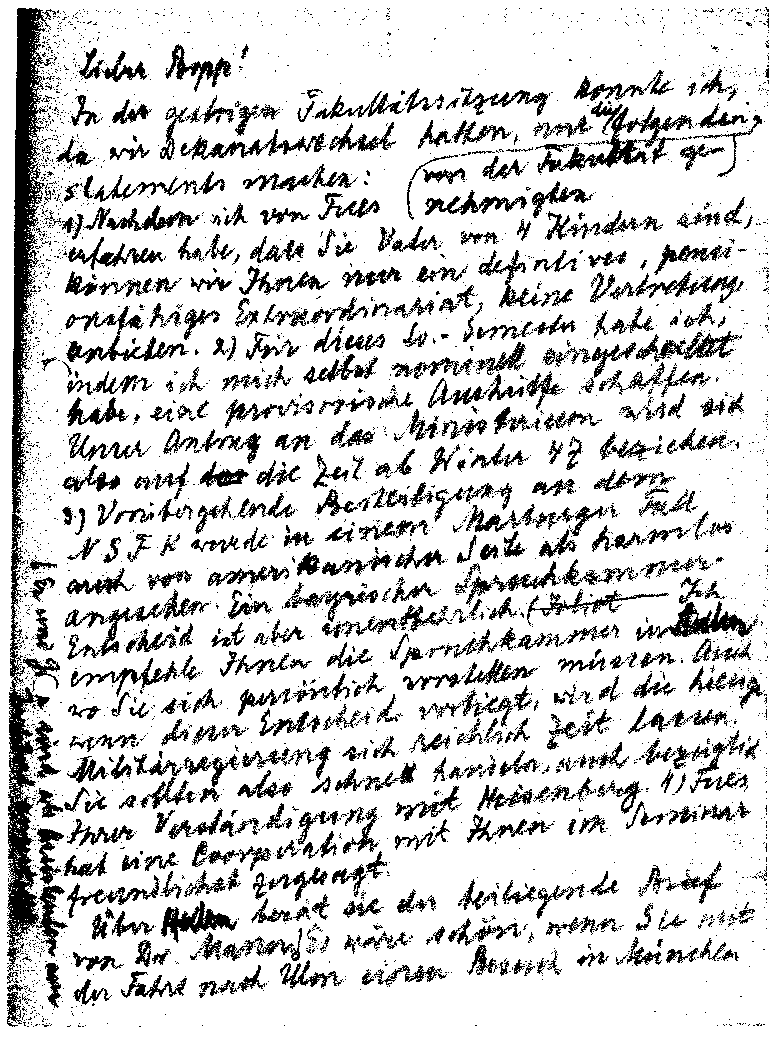 Lieber Bopp!
In der gestrigen Fakultätssitzung konnte ich,
da wir Dekanatswechsel hatten, nur die folgenden
statements machen: (von der Fakultät ge-
nehmigten)
1) Nachdem ich von Fues
erfahren habe, dass Sie Vater von 4 Kindern sind,
können wir Ihnen nur ein definitives, pensi-
onsfähiges Extraordinariat, keine Vertretung
anbieten. 2) Für dieses So.-Semester habe ich,
indem ich mich selbst nominell eingeschaltet
habe, eine provisorische Aushilfe schaffen.
Unser Antrag an das Ministerium wird sich
also auf das die Zeit ab Winter 47 beziehen.
3) Vorübergehende Beteiligung an dem
NSFK wurde in einem Marburger Fall
auch von amerikanischer Seite als harmlos
angesehen. Ein bayrischer Spruchkammer-
Entscheid ist aber unentbehrlich. Ich
empfehle Ihnen die Spruchkammer in
wo Sie sich persönlich vorstellen müssen. Auch
wenn dieser Entscheid vorliegt, wird die hiesige
Militärregierung sich reichlich Zeit lassen.
Sie sollten also schnell handeln, auch bezüglich
Ihrer Verständigung mit Heisenberg. 4) Fues
hat eine Cooperation mit Ihnen im Seminar
freundlichst zugesagt.
Über berät sie der beiliegende Brief
von Dr. Es wäre schön, wenn Sie mit
der Fahrt nach Ulm einen Besuch in München